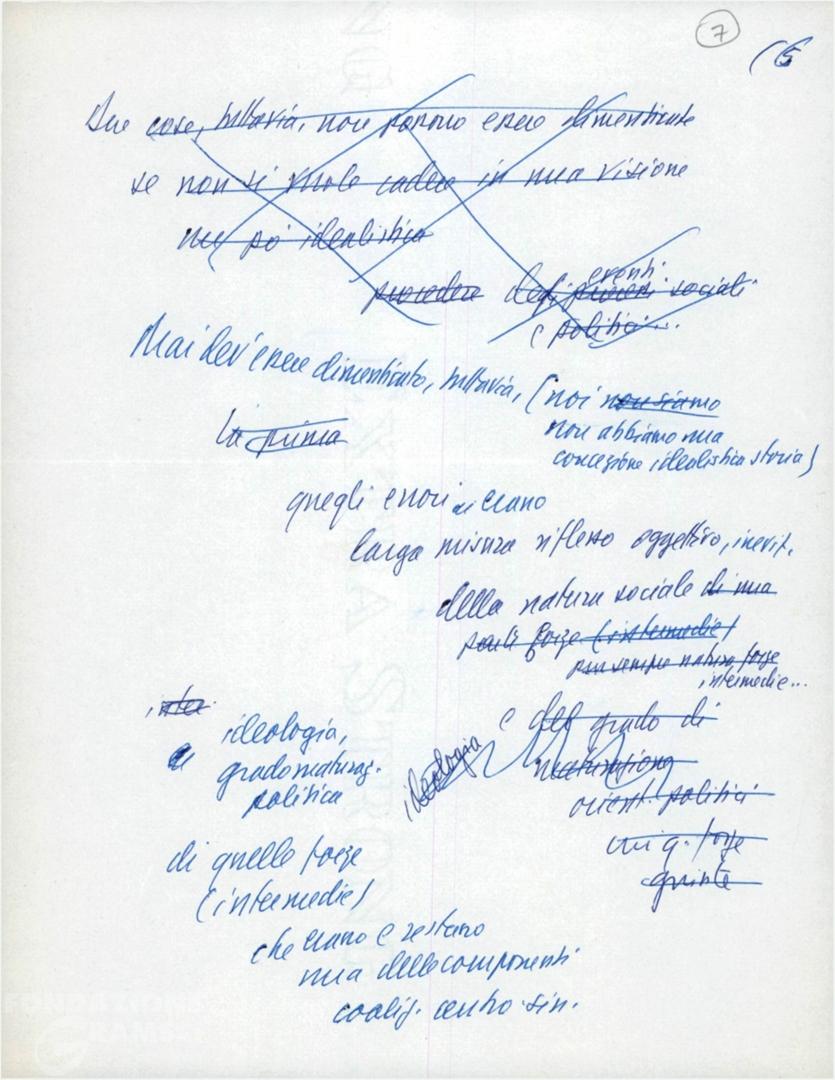 7
(5
Due cose, tuttavia, non possono essere dimenticate
se non si vuole cadere in una visione
un po' idealistica
procedere degli eventi
processi sociali
e politici...
Mai dev'essere dimenticato, tuttavia, (noi non siamo
non abbiamo una
concezione idealistica storia)
La prima
quegli errori erano
larga misura riflesso oggettivo, inevit.
della natura sociale di una
forze (intermedie)
pur sempre natura forze
intermedie...
inter
ideologia,
grado maturaz.
politica
ideologia
e del grado di
maturazione
orient. politici
cui q. forze
di quelle forze
(intermedie)
che erano e restano
una delle componenti
coaliz. centro-sin.
FONDAZIONE